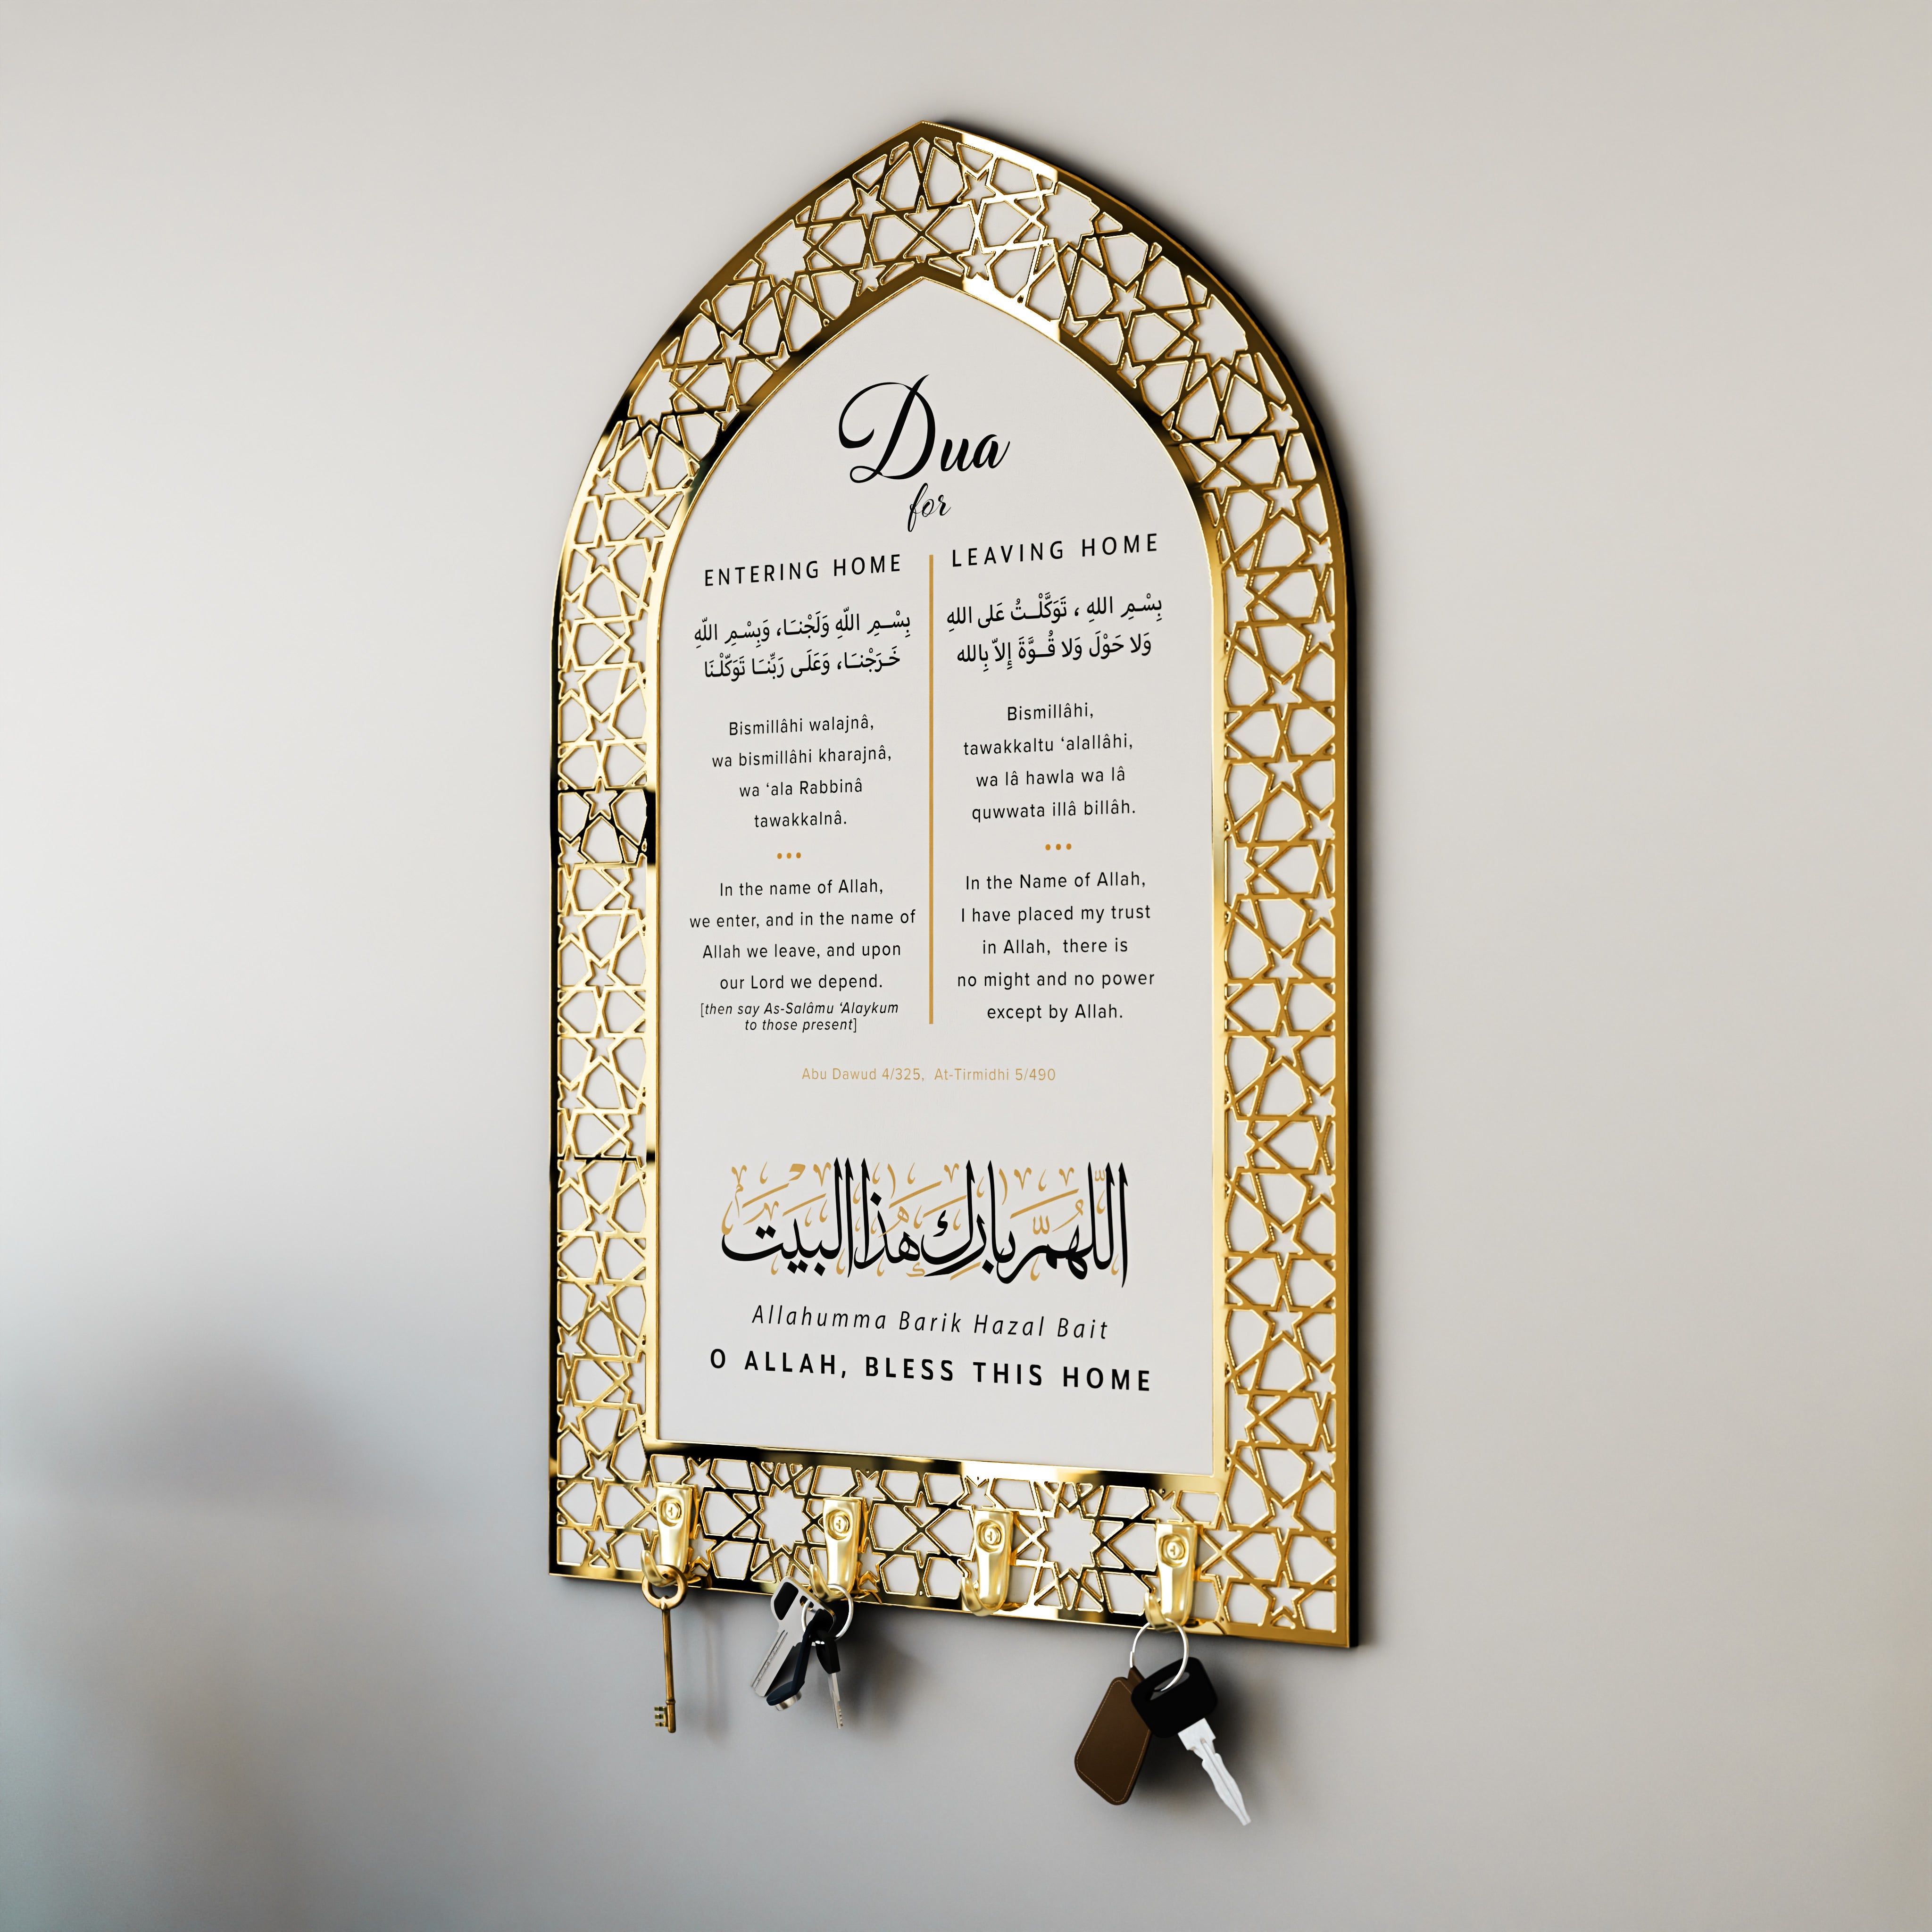 Dua
for
ENTERING HOME
بِسْـمِ اللّهِ وَلَجْنـَا، وَبِسْـمِ اللّهِ
خَـرَجْنـَا، وَعَلَـى رَبِّنـَا تَوَكّلْـنَا
Bismillâhi walajnâ,
wa bismillâhi kharajnâ,
wa ‘ala Rabbinâ
tawakkalnâ.
In the name of Allah,
we enter, and in the name of
Allah we leave, and upon
our Lord we depend.
[then say As-Salâmu ‘Alaykum
to those present]
LEAVING HOME
بِسْـمِ اللهِ ، تَوَكَّلْـتُ عَلى اللهِ
وَلا حَوْلَ وَلا قُـوَّةَ إِلاّ بِالله
Bismillâhi,
tawakkaltu ‘alallâhi,
wa lâ hawla wa lâ
quwwata illâ billâh.
In the Name of Allah,
I have placed my trust
in Allah, there is
no might and no power
except by Allah.
Abu Dawud 4/325, At-Tirmidhi 5/490
اللّهمّ بارك هذا البيت
Allahumma Barik Hazal Bait
O ALLAH, BLESS THIS HOME